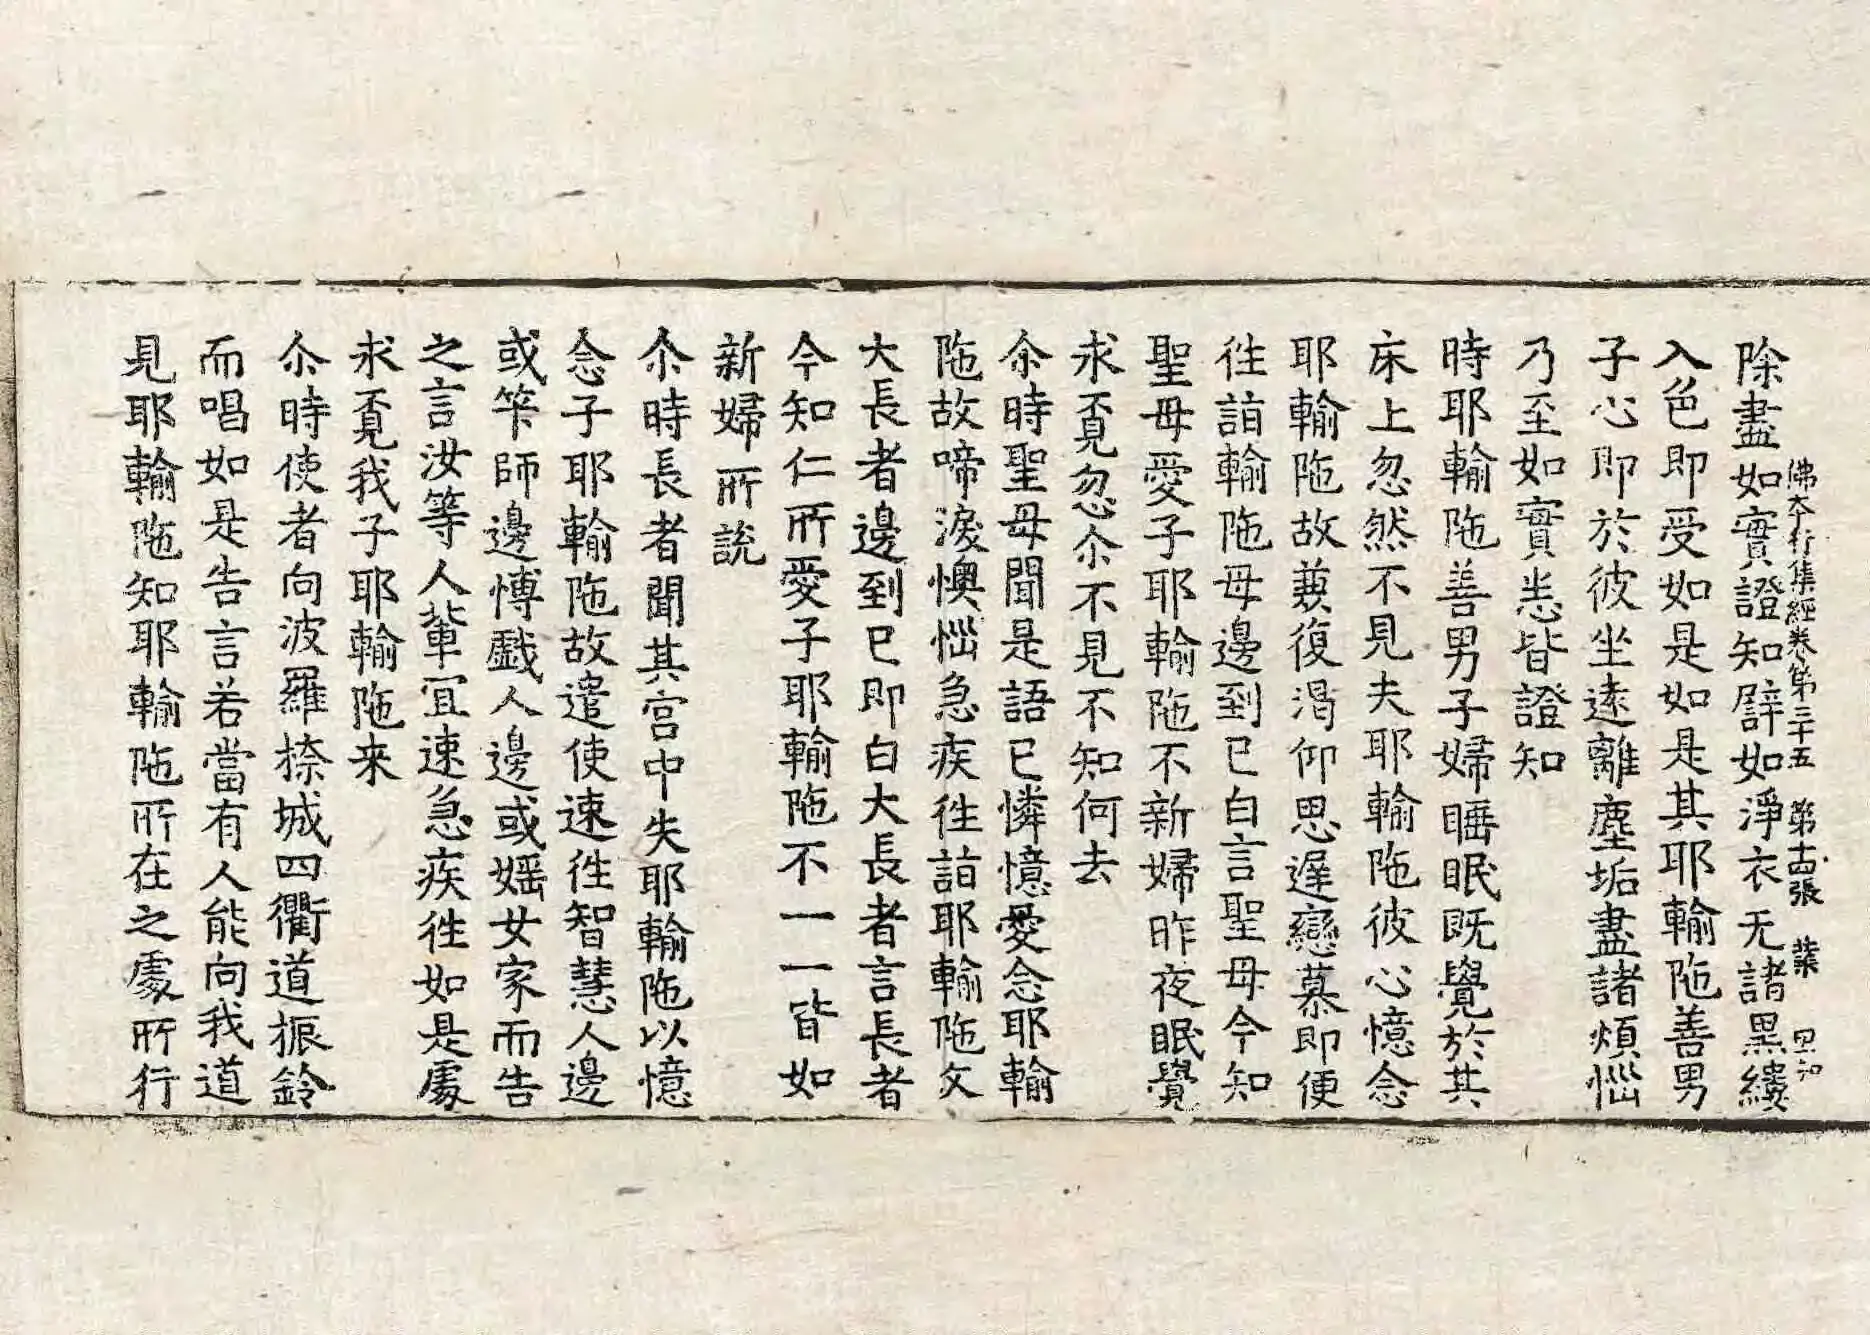 佛本行集經卷第三十五　第十四張　業
除盡如實證知譬如淨衣无諸黒縷
入色即受如是如是其耶輸陁善男
子心即於彼坐逺離塵垢盡諸煩惱
乃至如實恚皆證知
時耶輸陁善男子婦睡眠既覺於其
床上忽然不見夫耶輸陁彼心憶念
耶輸陁故兼復渴仰思遲戀慕即便
徃詣輸陁母邊到已白言聖母今知
聖母愛子耶輸陁不新婦昨夜眠覺
求覔忽尒不見不知何去
尒時聖母聞是語已憐憶愛念耶輸
陁故啼淚懊惱急疾徃詣耶輸陁父
大長者邊到已即白大長者言長者
今知仁所愛子耶輸陁不一一皆如
新婦所說
尒時長者聞其宫中失耶輸陁以憶
念子耶輸陁故遣使速徃智慧人邊
或筭師邊博戲人邊或婬女家而告
之言汝等人輩宜速急疾徃如是處
求覔我子耶輸陁来
尒時使者向波羅㮈城四衢道振鈴
而唱如是告言若當有人能向我道
見耶輸陁知耶輸陁所在之處所行